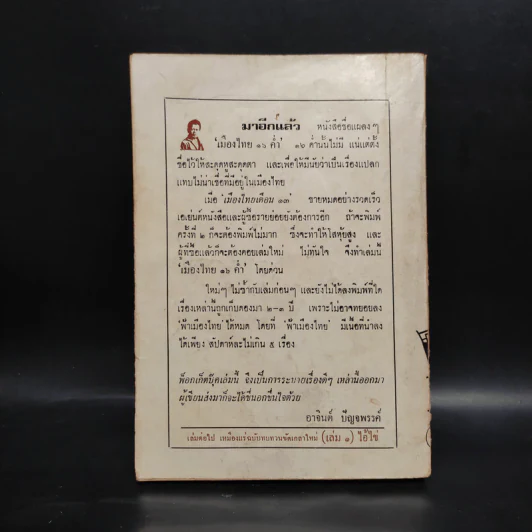 มาอีกแล้ว หนังสือชื่อแผลงๆ
'เมืองไทย ๑๖ ค่ำ' ๑๖ ค่ำนั้นไม่มี แน่แต่ตั้ง
ชื่อไว้ให้สะดุดหูสะดุดตา และเพื่อให้มีนัยว่าเป็นเรื่องแปลก
แทบไม่น่าเชื่อที่มีอยู่ในเมืองไทย
เมื่อ 'เมืองไทยเดือน ๑๓' ขายหมดอย่างรวดเร็ว
เอเย่นต์หนังสือและผู้ซื้อรายย่อยยังต้องการอีก ถ้าจะพิมพ์
ครั้งที่ ๒ ก็จะต้องพิมพ์ไม่มาก ซึ่งจะทำให้ใส่หุ้ยสูง และ
ผู้ที่ซื้อแล้วก็จะต้องคอยเล่มใหม่ ไม่ทันใจ จึงทำเล่มนี้
'เมืองไทย ๑๖ ค่ำ' โดยด่วน
ใหม่ๆ ไม่ซ้ำกับเล่มก่อนๆ และยังไม่ได้ลงพิมพ์ที่ใด
เรื่องเหล่านี้ถูกเก็บดองมา ๒-๓ ปี เพราะไม่อาจทยอยลง
'ฟ้าเมืองไทย' ได้หมด โดยที่ 'ฟ้าเมืองไทย' มีเนื้อที่นำลง
ได้เพียง สัปดาห์ละไม่เกิน ๕ เรื่อง
พ็อกเก็ตบุ๊คเล่มนี้ จึงเป็นการระบายเรื่องดีๆ เหล่านี้ออกมา
ผู้เขียนส่งมาก็จะได้ชื่นอกชื่นใจด้วย
อาจินต์ ปัญจพรรค์
เล่มต่อไป เหมืองแร่ฉบับทบทวนขัดเกลาใหม่ (เล่ม ๑) ไอ้ไข่